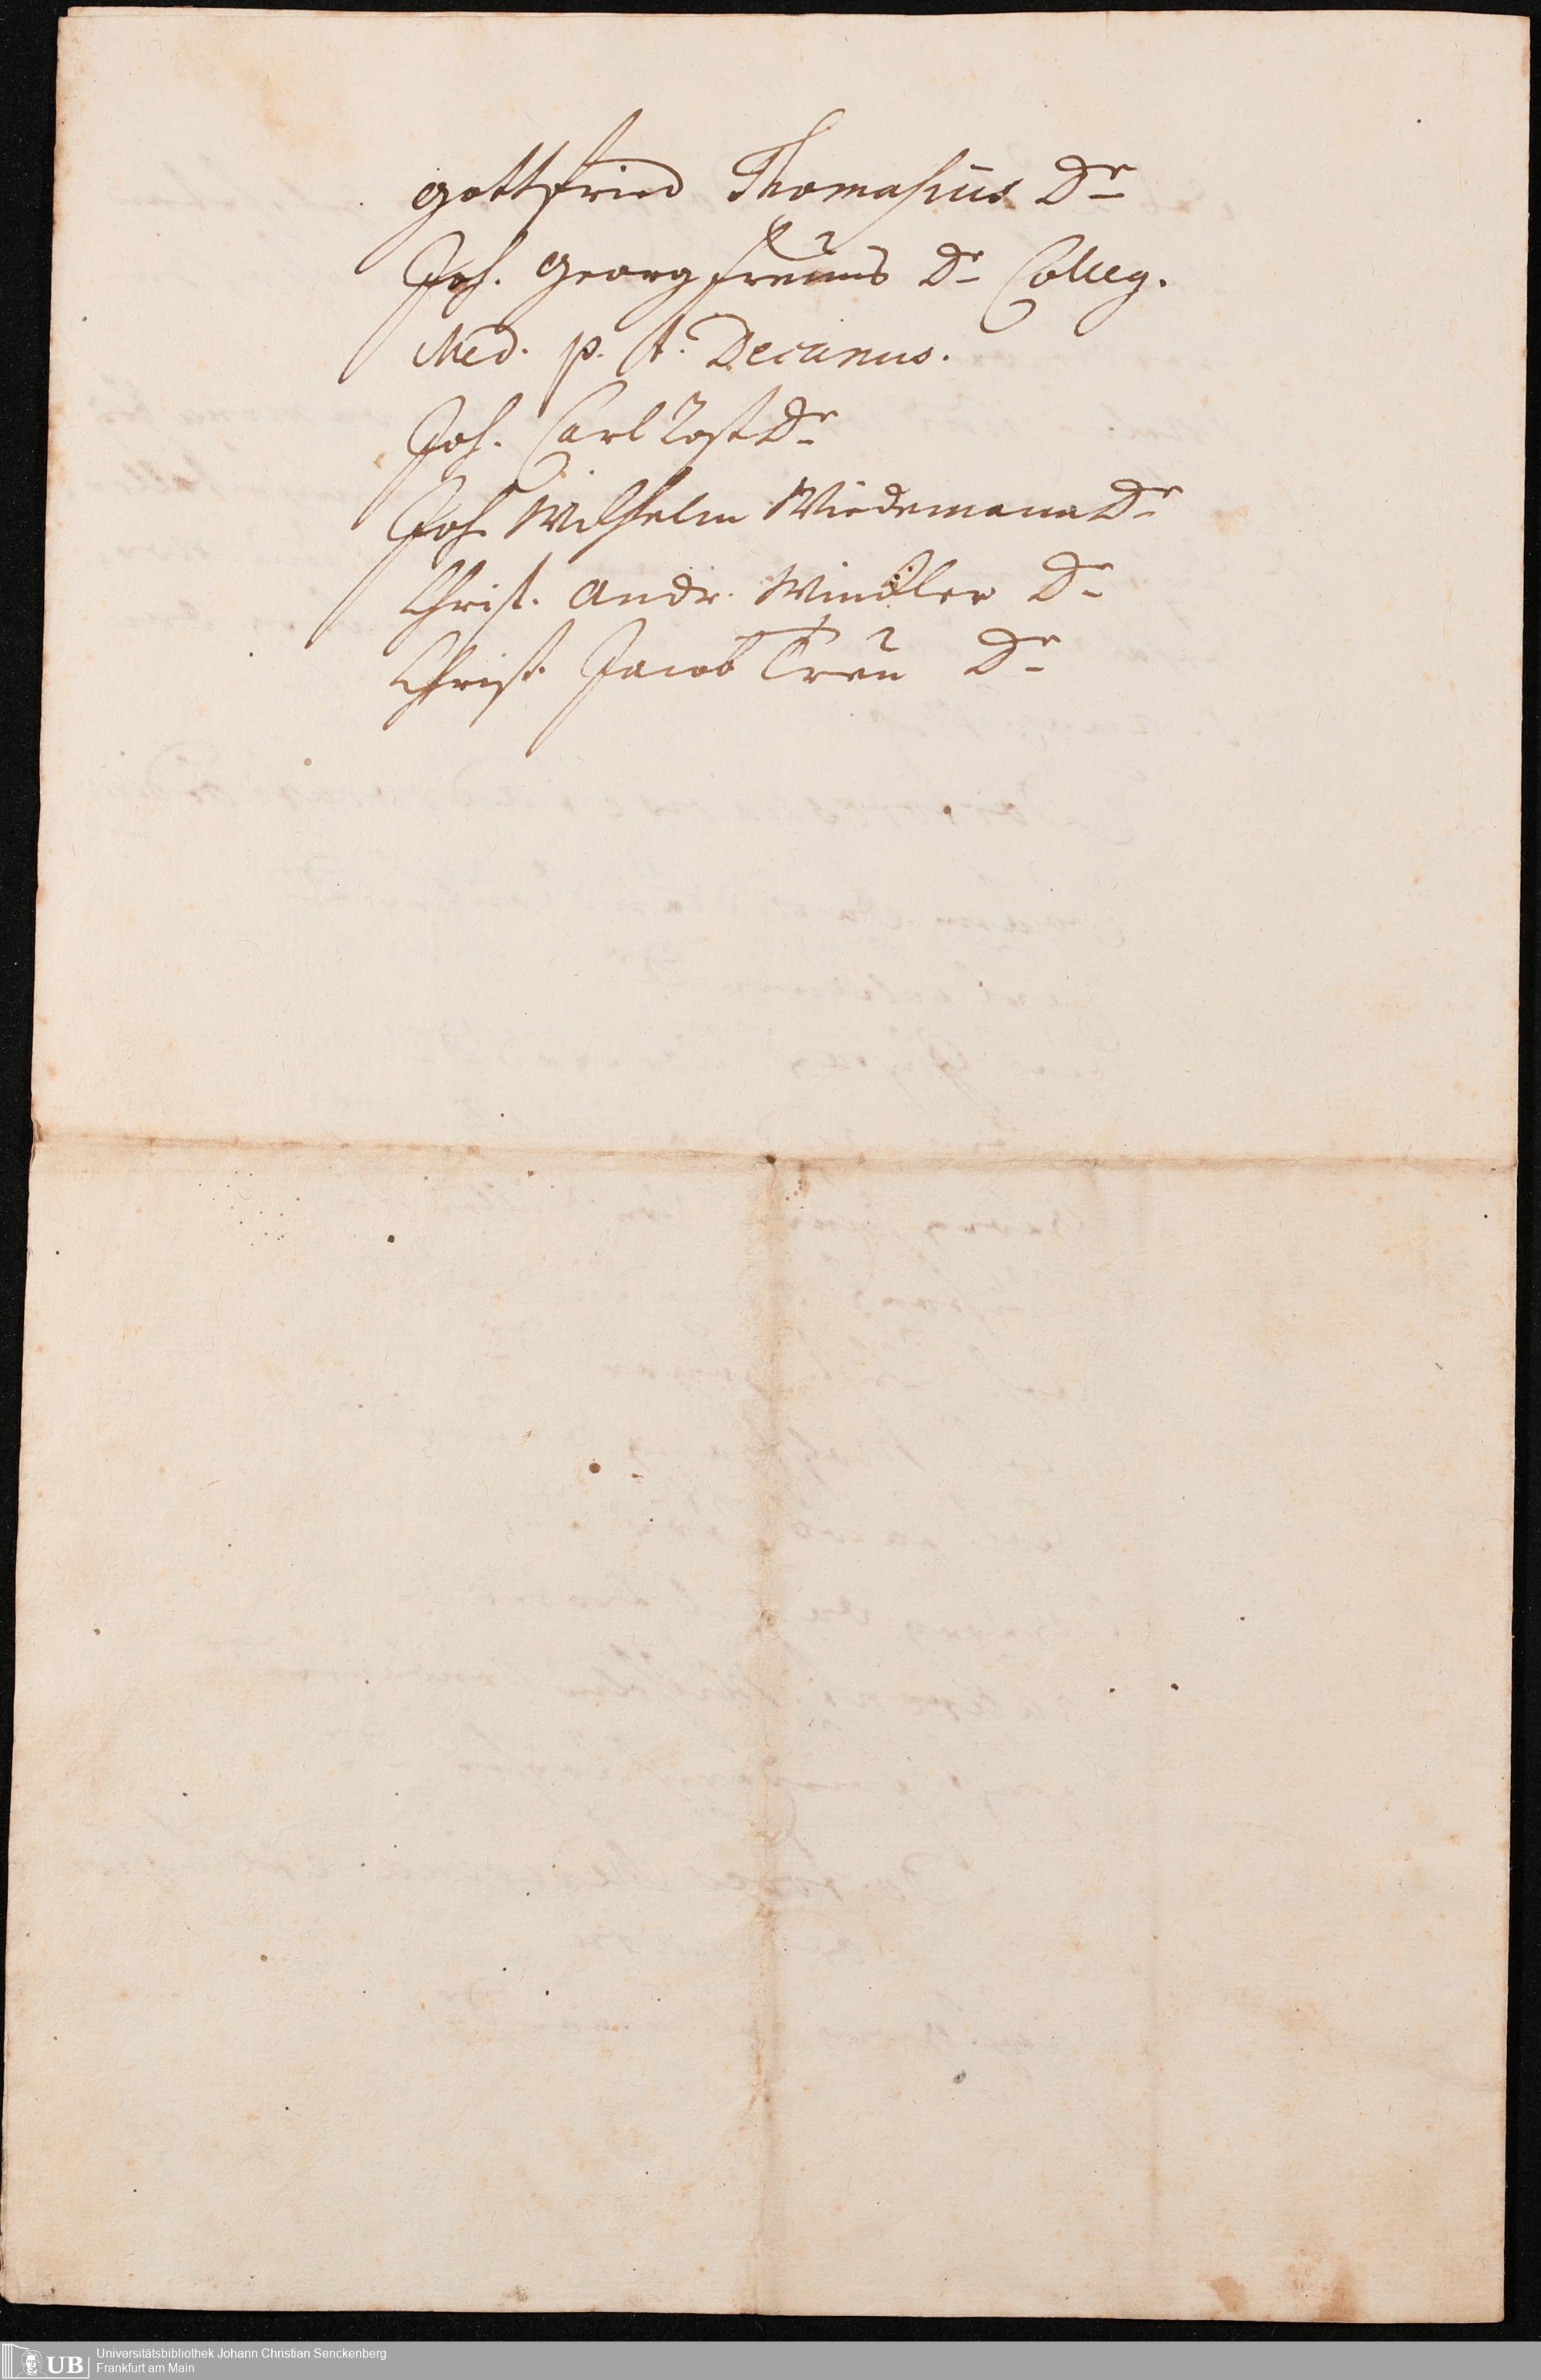 Gottfried Thomasius Dr
Joh. Georg Dr Colleg.
Med. p. t. Decanus.
Joh. Carl Rost Dr
Joh. Wilhelm Wiedemann Dr
Christ. Andr. Windler Dr
Christ. Jacob Treu Dr
UB
Universitätsbibliothek Johann Christian Senckenberg
Frankfurt am Main